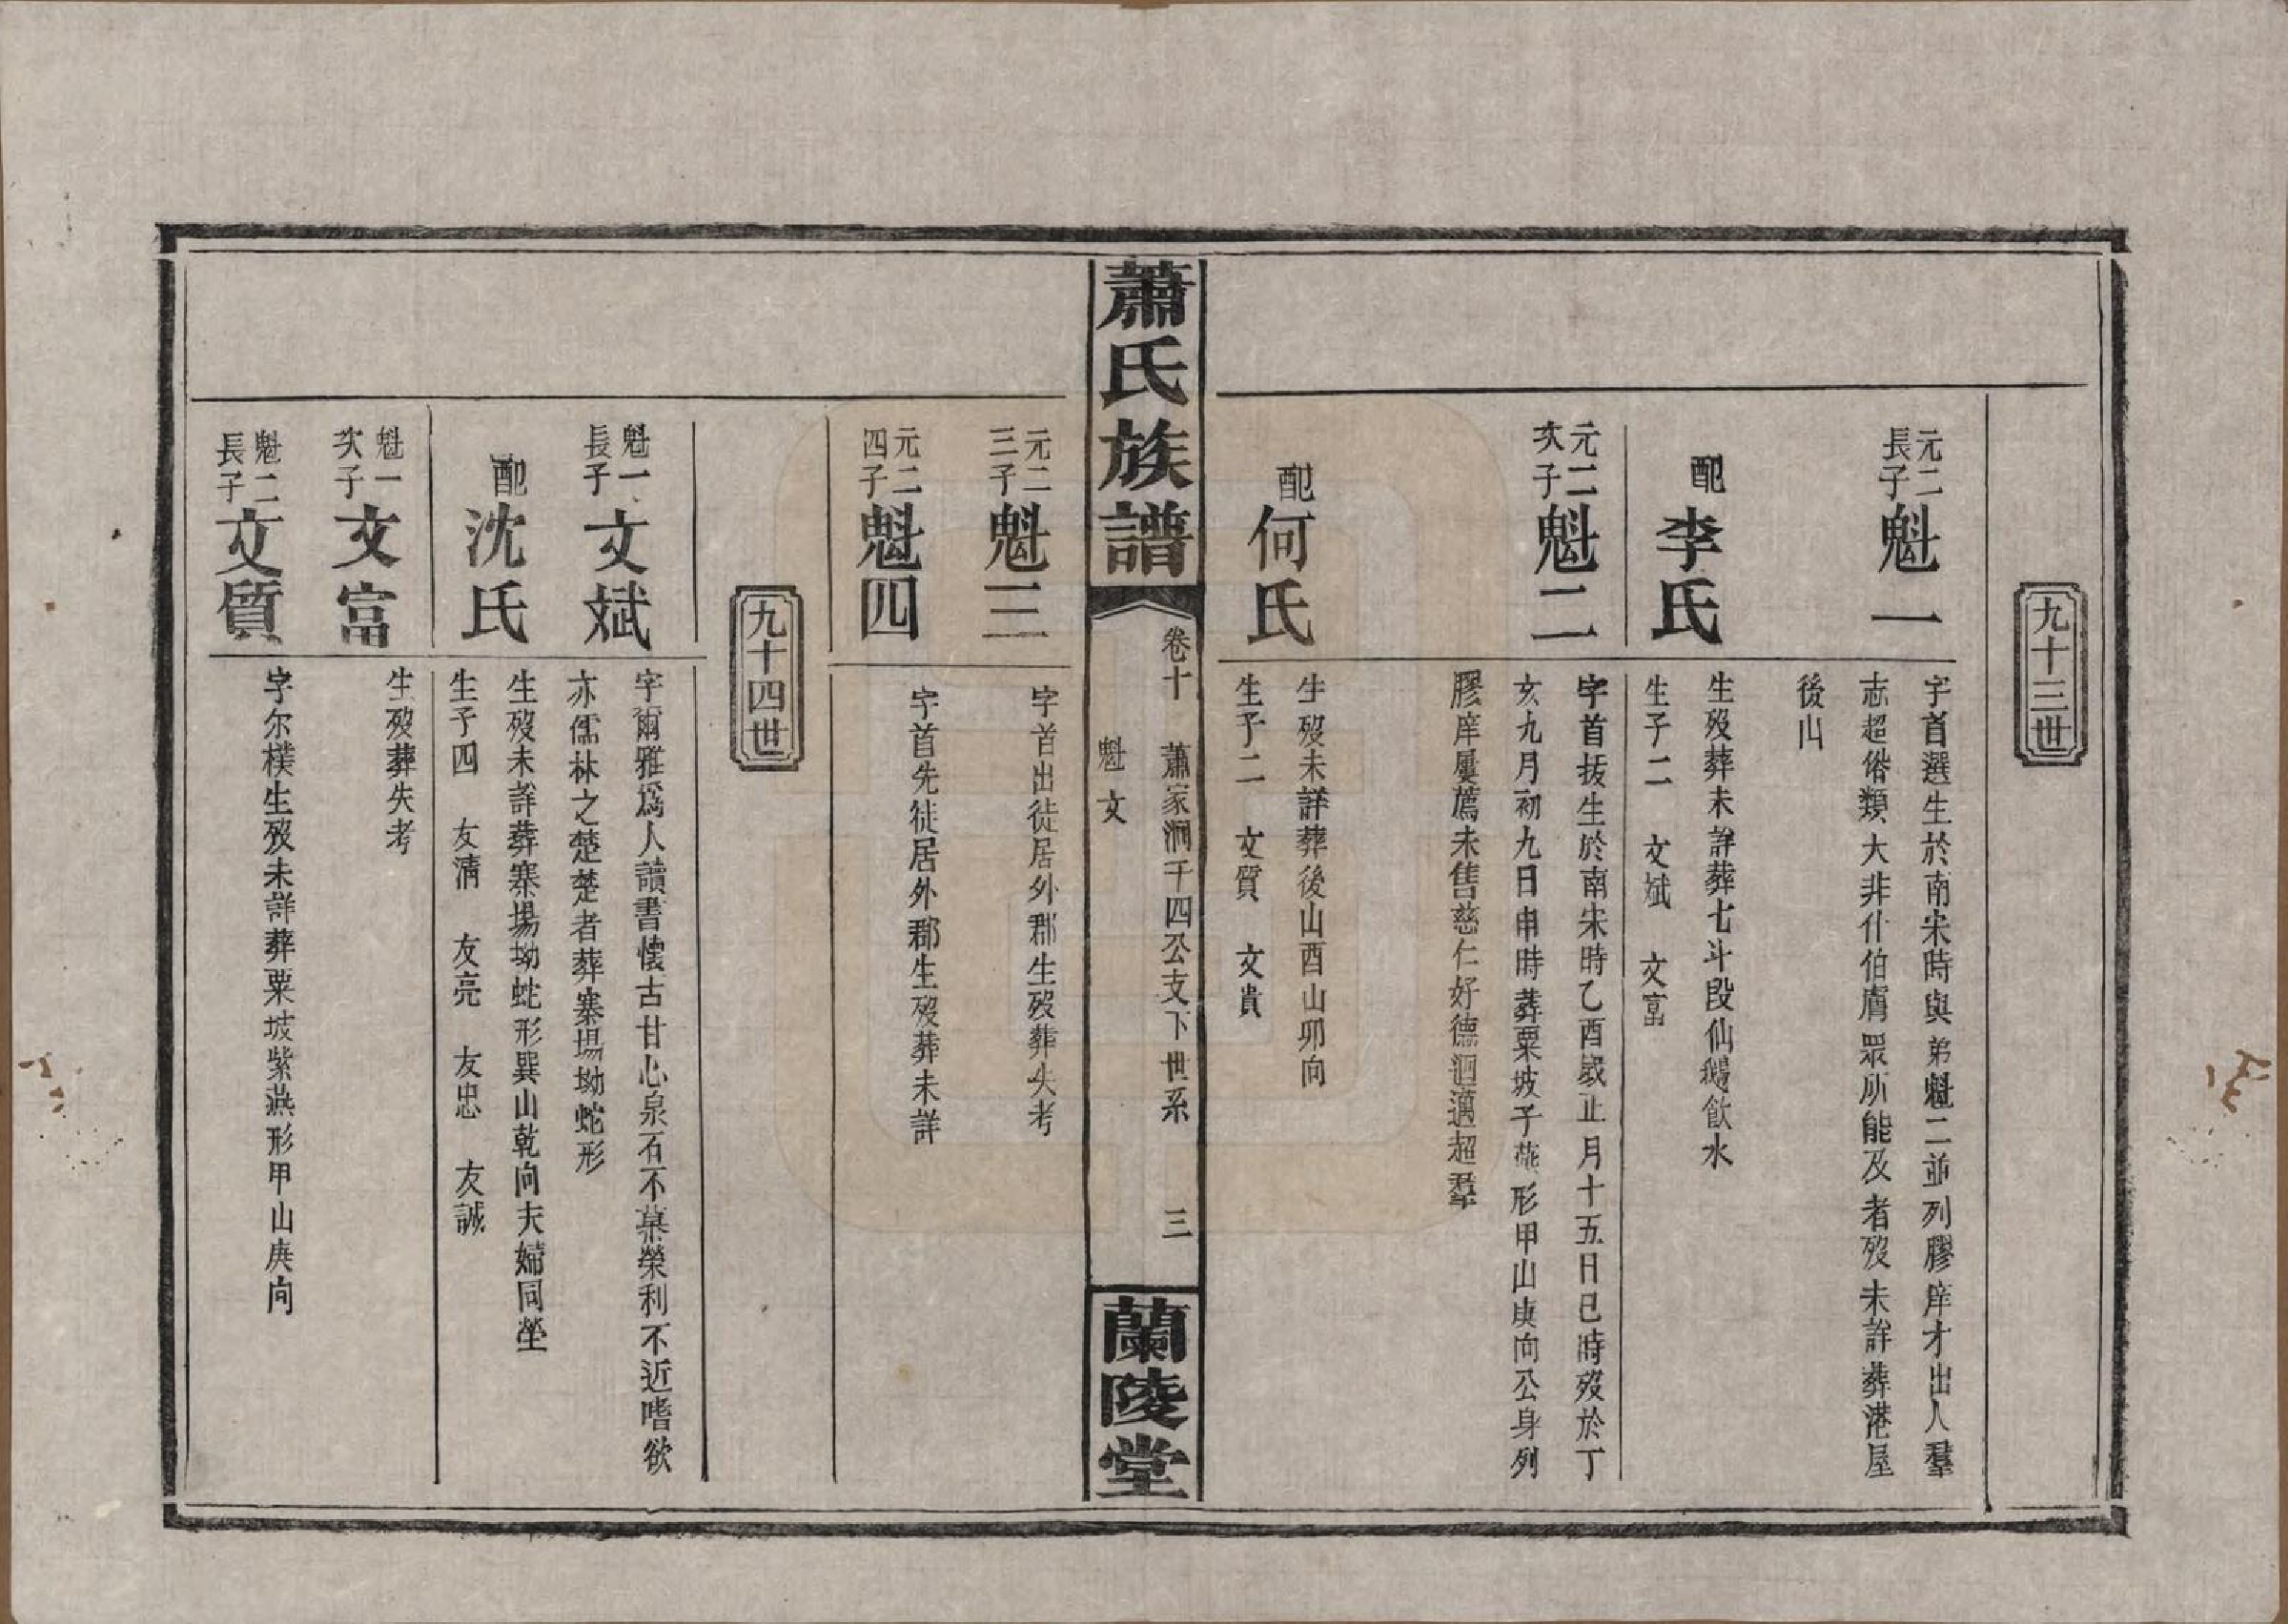 九十三世
元二
長子
魁一
字首選生於南宋時與弟魁二並列膠庠才出人羣
志超俗類大非什伯庸眾所能及者歿未詳葬港屋
後山
配
李氏
生歿葬未詳葬七斗段仙鵝飲水
生子二 文斌 文富
元二
次子
魁二
字首拔生於南宋時乙酉歲正月十五日巳時歿於丁
亥九月初九日申時葬粟坡子燕形甲山庚向公身列
膠庠屢薦未售慈仁好德迴邁超羣
配
何氏
生歿未詳葬後山酉山卯向
生子二 文質 文貴
蕭氏族譜
卷十 蕭家洞千四公支下世系 三
魁文
蘭陵堂
元二
三子
魁三
字首出徙居外郡生歿葬失考
元二
四子
魁四
字首先徙居外郡生歿葬未詳
九十四世
魁一
長子
文斌
字爾雅爲人讀書懷古甘心泉石不慕榮利不近嗜欲
亦儒林之楚楚者葬寨場坳蛇形
配
沈氏
生歿未詳葬寨場坳蛇形巽山乾向夫婦同塋
生子四 友清 友亮 友忠 友誠
魁一
次子
文富
生歿葬失考
魁二
長子
文質
字尔樸生歿未詳葬粟坡紫燕形甲山庚向